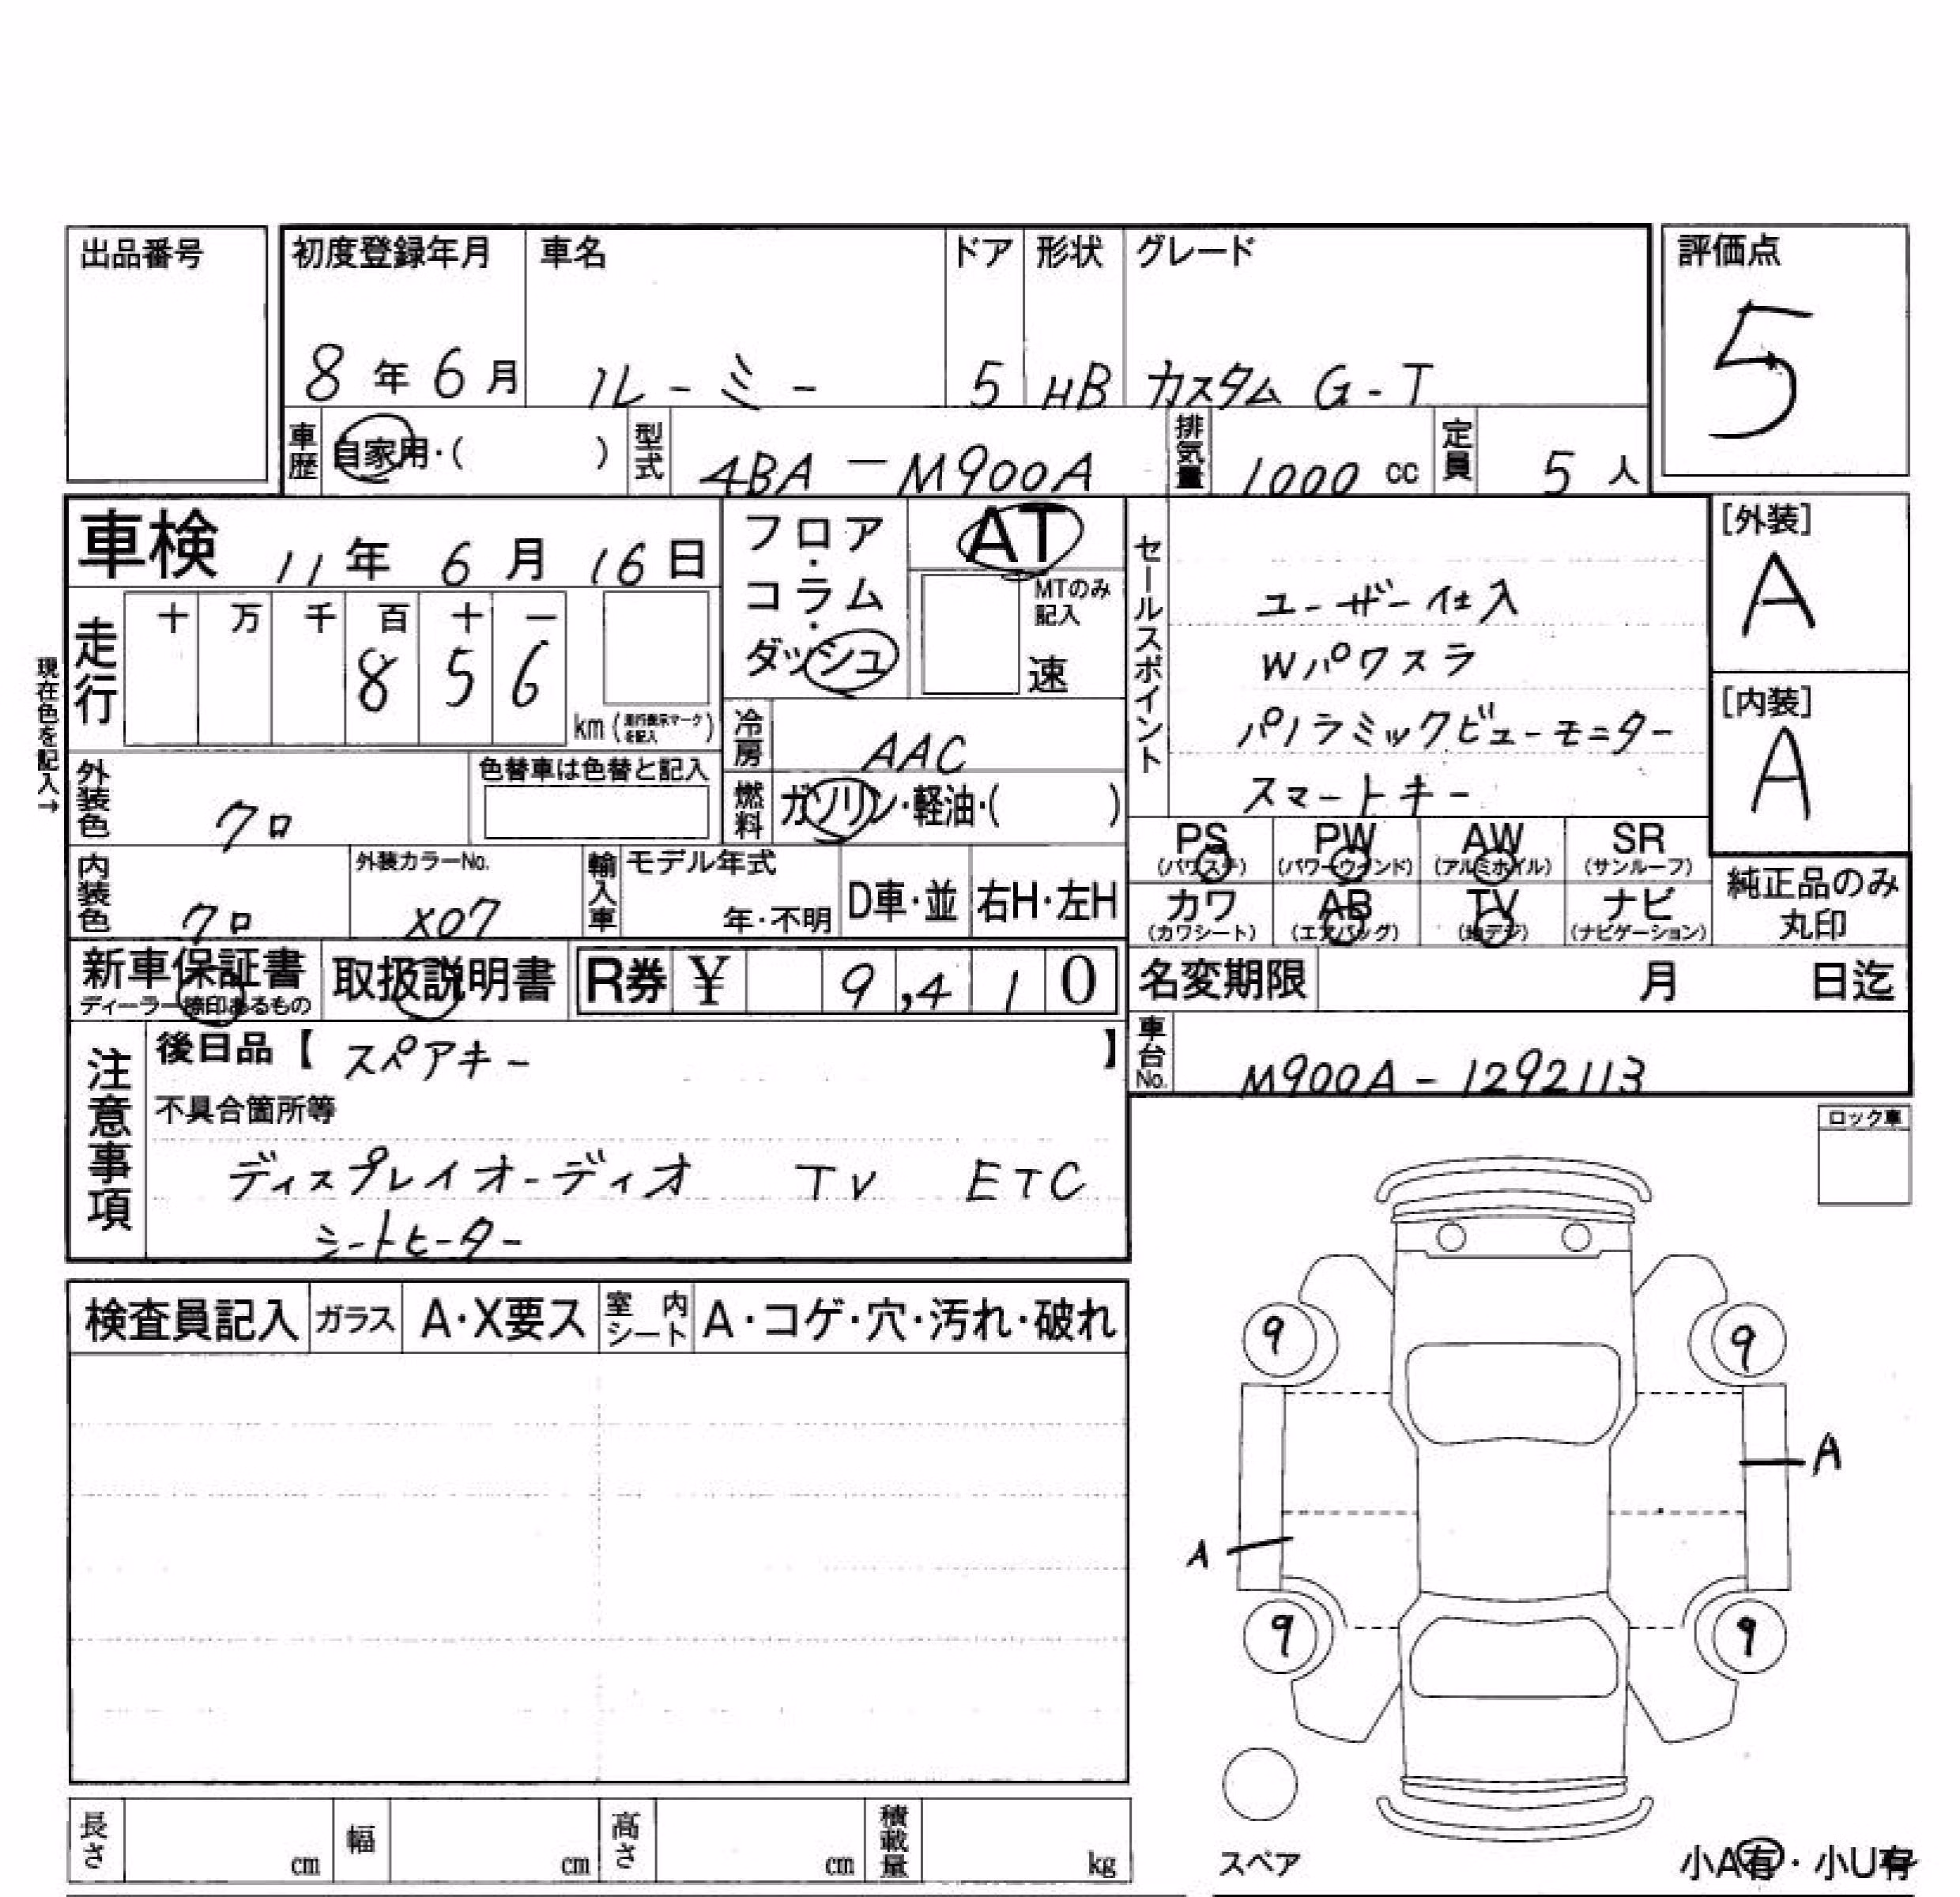 出品番号
初度登録年月 車名 ドア 形状 グレード 評価点
8年6月 ルーミー 5 HB カスタム G-T 5
車歴 自家用・( ) 型式 4BA-M900A 排気量 1000cc 定員 5人
車検 11年6月16日 フロア・コラム・ダッシュ AT
MTのみ記入 速
走行 十 万 千 百 十 一
8 5 6 km(走行表示マークを記入)
現在色を記入→
冷房 AAC
燃料 ガソリン・軽油・( )
外装色 クロ 色替車は色替と記入
内装色 クロ 外装カラーNo. X07 輸入車 モデル年式 年・不明 D車・並 右H・左H
セールスポイント
ユーザー仕入
Wパワスラ
パノラミックビューモニター
スマートキー
[外装] A
[内装] A
PS (パワステ) PW (パワーウィンド) AW (アルミホイル) SR (サンルーフ)
カワ (カワシート) AB (エアバッグ) TV (地デジ) ナビ (ナビゲーション)
純正品のみ丸印
新車保証書 ディーラー捺印あるもの 取扱説明書 R券 ¥ 9,410
名変期限 月 日迄
車台No. M900A-1292113
注意事項
後日品【 スペアキー 】
不具合箇所等
ディスプレイオーディオ TV ETC
シートヒーター
ロック車
検査員記入 ガラス A・X要ス 室内シート A・コゲ・穴・汚れ・破れ
9 9
A
A
9 9
スペア
小A有・小U有
長さ cm 幅 cm 高さ cm 積載量 kg